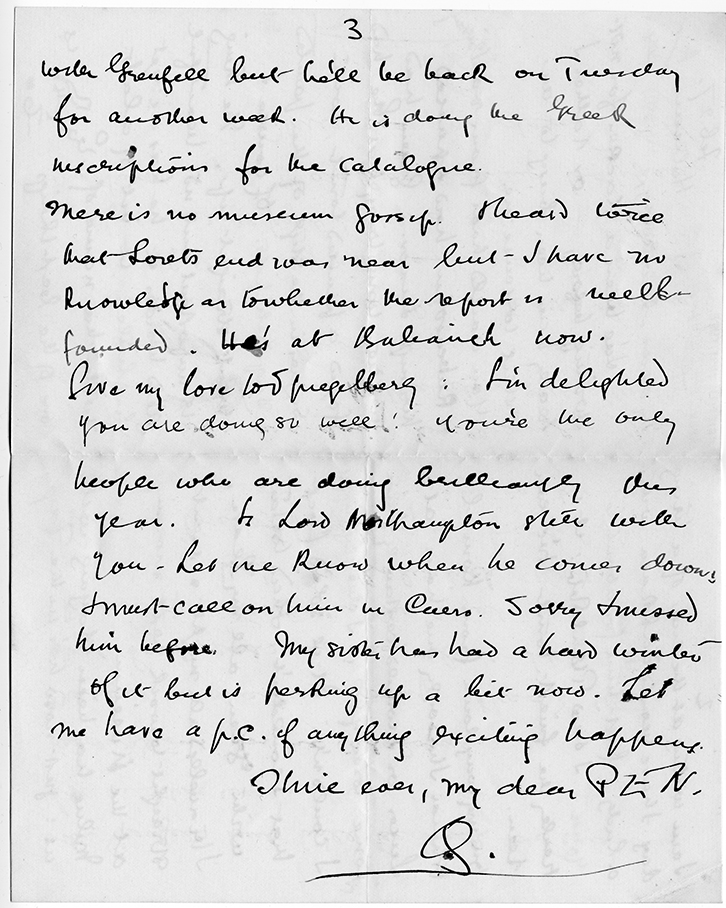 3
with Grenfell but he'll be back on Tuesday
for another week. He is doing the Greek
inscriptions for the catalogue.
There is no museum gossip. I heard twice
that Loret's end was near but I have no
knowledge as to whether the report is well-
founded. He's at now.
Give my love to Spiegelberg: I'm delighted
you are doing so well! You're the only
people who are doing brilliantly this
year. Is Lord Northampton still with
you - Let me know when he comes down:
I must call on him in Cairo. Sorry I missed
him before. My sister has had a hard winter
of it but is perking up a bit now. Let
me have a p.c. if anything exciting happens.
Thine ever, my dear P E N.